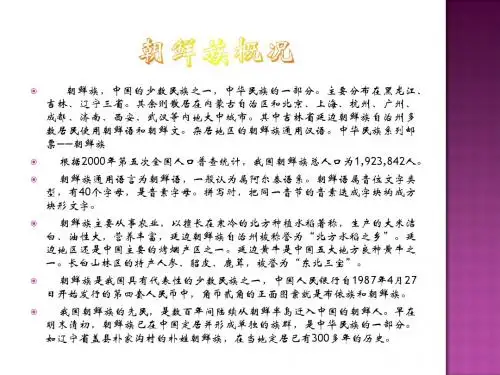 朝鲜族概况
朝鲜族，中国的少数民族之一，中华民族的一部分。主要分布在黑龙江、
吉林、辽宁三省。其余则散居在内蒙古自治区和北京、上海、杭州、广州、
成都、济南、西安、武汉等内地大中城市。其中吉林省延边朝鲜族自治州多
数居民使用朝鲜语和朝鲜文。杂居地区的朝鲜族通用汉语。中华民族系列邮
票——朝鲜族
根据2000年第五次全国人口普查统计，我国朝鲜族总人口为1,923,842人。
朝鲜族通用语言为朝鲜语，一般认为属阿尔泰语系。朝鲜语属音位文字类
型，有40个字母，是音素字母。拼写时，把同一音节的音素迭成字块构成方
块形文字。
朝鲜族主要从事农业，以擅长在寒冷的北方种植水稻著称，生产的大米洁
白、油性大，营养丰富，延边朝鲜族自治州被称誉为“北方水稻之乡”。延
边地区还是中国主要的烤烟产区之一。延边黄牛是中国五大地方良种黄牛之
一。长白山林区的特产人参、貂皮、鹿茸，被誉为“东北三宝”。
朝鲜族是我国具有代表性的少数民族之一，中国人民银行自1987年4月27
日开始发行的第四套人民币中，角币贰角的正面图案就是布依族和朝鲜族。
我国朝鲜族的先民，是数百年间陆续从朝鲜半岛迁入中国的朝鲜人。早在
明末清初，朝鲜族已在中国定居并形成单独的族群，是中华民族的一部分。
如辽宁省盖县朴家沟村的朴姓朝鲜族，在当地定居已有300多年的历史。